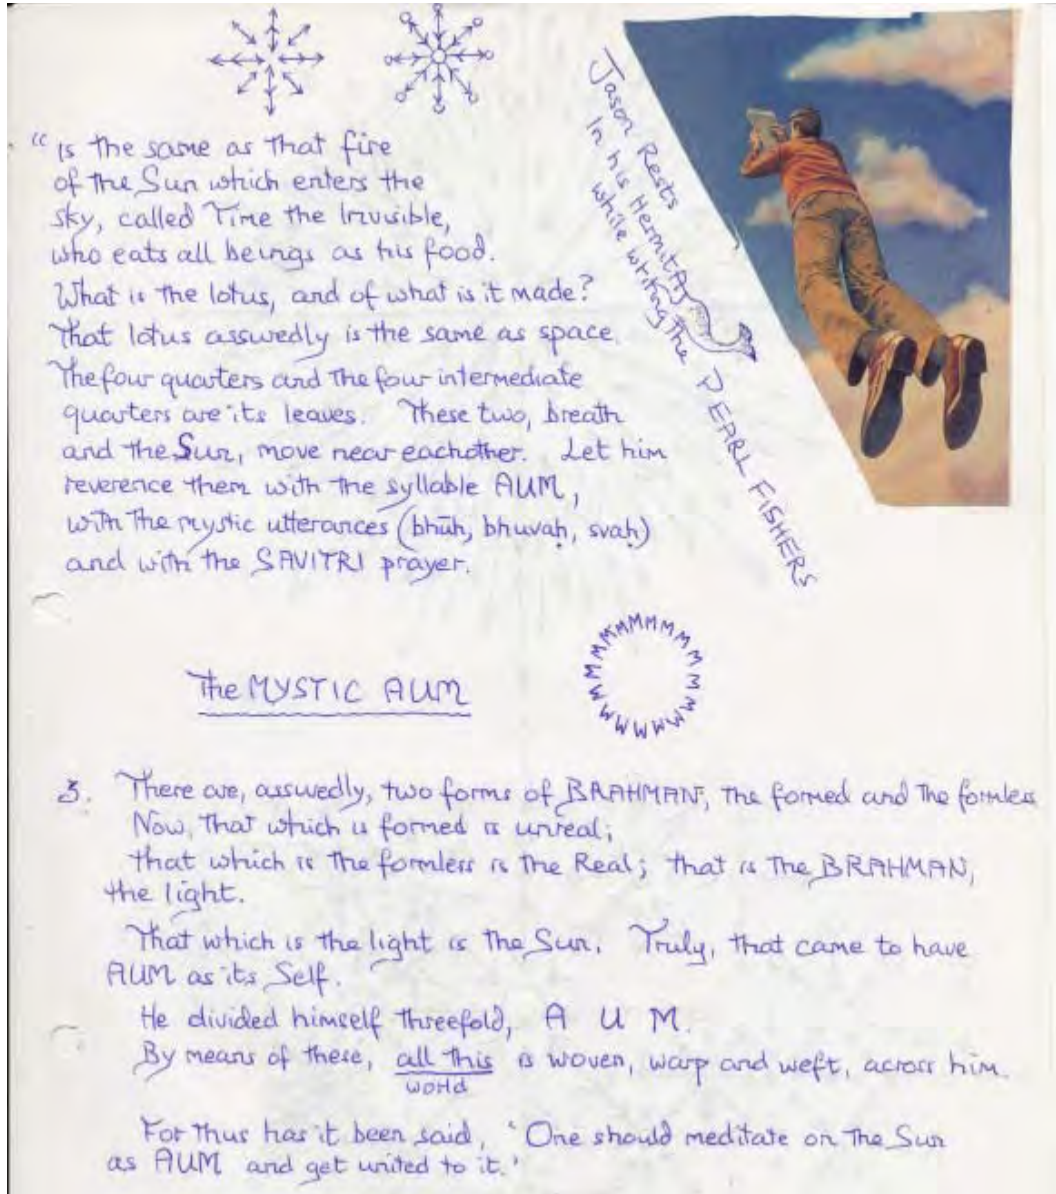 " is the same as that fire
of the Sun which enters the
sky, called Time the Invisible,
who eats all beings as his food.
What is the lotus, and of what is it made?
That lotus assuredly is the same as space.
The four quarters and the four intermediate
quarters are its leaves. These two, breath
and the Sun, move near eachother. Let him
reverence them with the syllable AUM,
with the mystic utterances (bhūḥ, bhuvaḥ, svaḥ)
and with the SAVITRI prayer.
Jason Rests
in his Hermitage
while writing the PEARL FISHERS
The MYSTIC AUM
MMMMMMMMMMMMMMMMMMMMMM
3. There are, assuredly, two forms of BRAHMAN, the formed and the formless
Now, that which is formed is unreal;
that which is the formless is the Real; that is the BRAHMAN,
the light.
That which is the light is the Sun. Truly, that came to have
AUM as its Self.
He divided himself threefold, A U M.
By means of these, all this is woven, warp and weft, across him.
world
For thus has it been said, 'One should meditate on the Sun
as AUM and get united to it.'